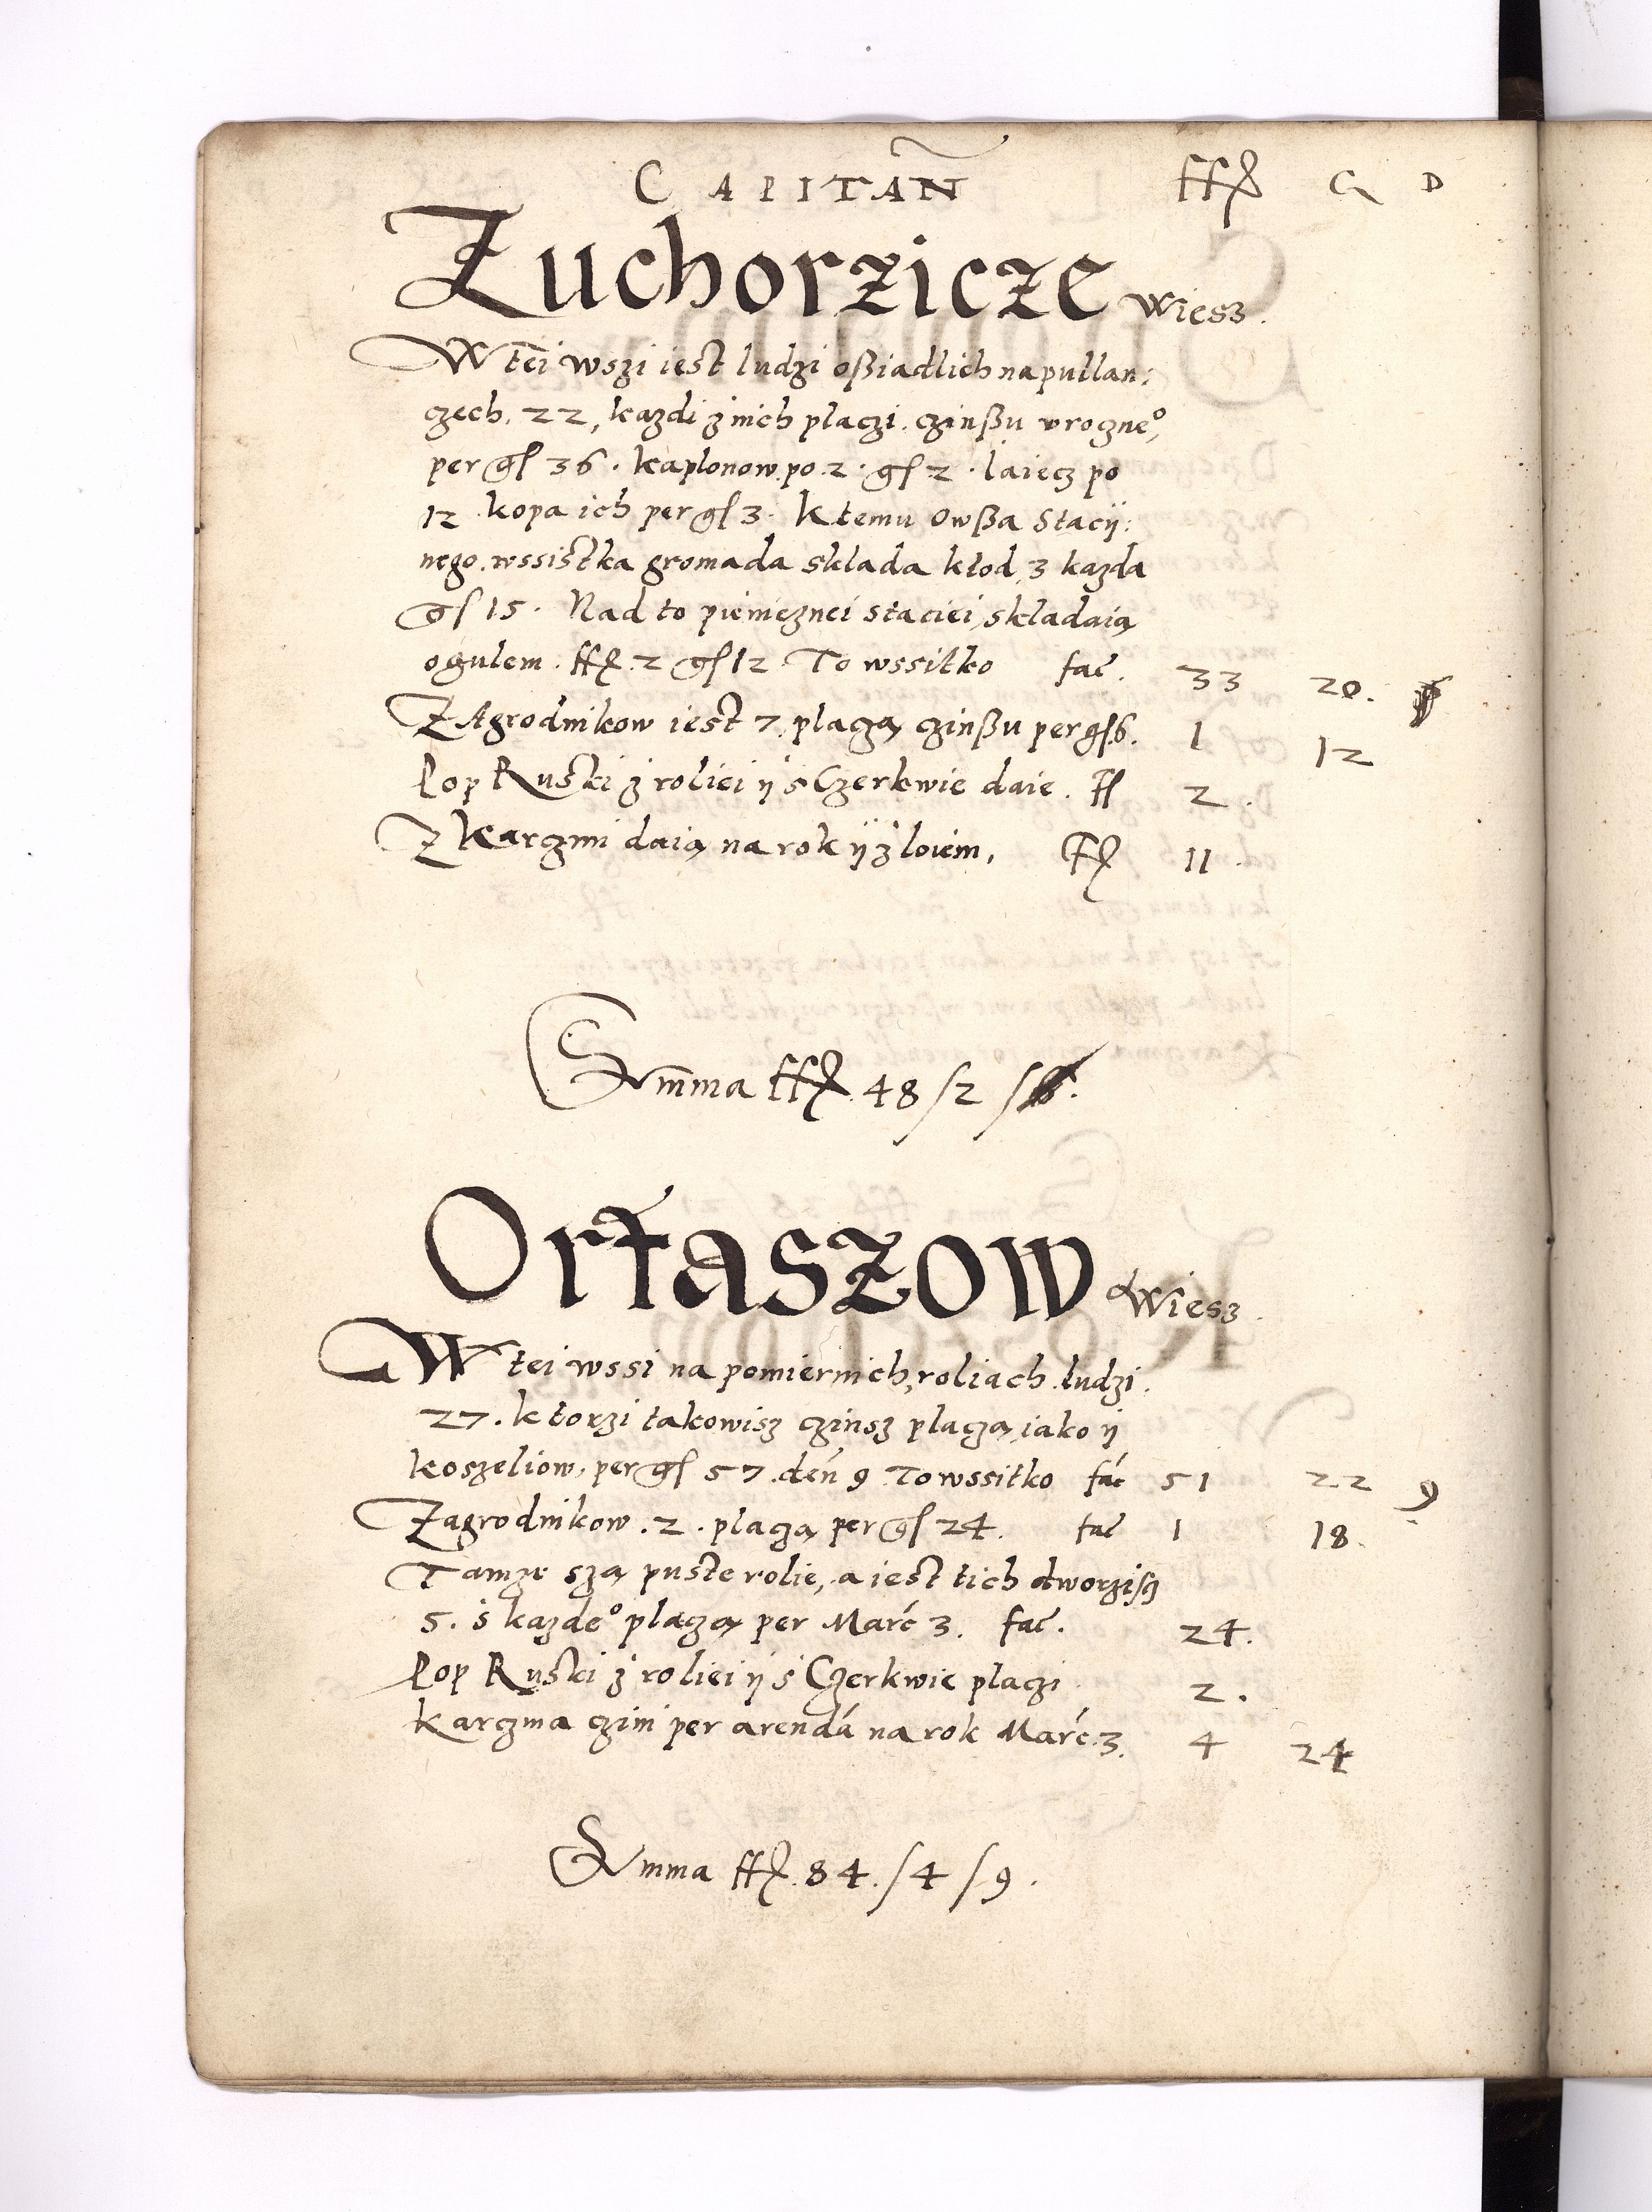 CAPITAN̄ ffl G D
Zuchorzicze wiesz.
W tei wszi iest ludzi oßiadlich na pullan:
czech. 22, kazdi z nich placzi. czinßu vrogne°,
per gſ 36. kaplonow. po. 2. gſ 2. Iaiecz po
12 kopa ich per gſ 3. k temu Owßa Stacij:
nego. wssistka gromada sklada kłod, 3 kazda
gſ 15. Nad to pienieznei staciei, składaią
ogulem. ffl. 2 gſ 12 To wssitko fac̄. 33 20.
ZAgrodnikow iest 7. placzą czinßu per gſ.6. 1 12
Pop Ruski z roliei ij s Czerkwie daie. ff 2.
Z karczmi daią na rok ij z loiem, Fl 11.
Sum̄ma ffl. 48 / 2 /
Ortaszow wiesz.
W tei wssi na pomiernich, roliach. ludzi.
27. ktorzi takowisz czinsz placzą, iako ij
koszeliow, per gſ 57. den 9. To wssitko fac 51 22 9
Zagrodnikow. 2. placzą per gſ 24. fac̄ 1 18.
Tamze szą puste rolie, a iest tich dworzisz
5. s kazde° placzą per Marć 3. fac̄. 24.
Pop Ruski z roliei ij s Czerkwie placzi 2.
karczma czini per arendá na rok Marć. 3. 4 24
Summa ffl. 84. / 4 / 9.